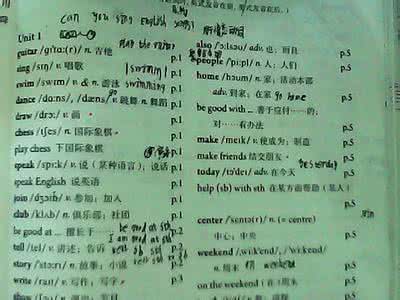 can you sing English songs?
Unit 1
guitar /gɪ'tɑː(r)/ n. 吉他 p.1
sing /sɪŋ/ v. 唱歌 p.1
swim /swɪm/ v. & n. 游泳 swimming p.1
dance /dɑːns/, /dæns/ v. 跳舞 n. 舞蹈 p.1
draw /drɔː/ v. 画 p.1
chess /tʃes/ n. 国际象棋 p.1
play chess 下国际象棋 p.1
speak /spiːk/ v. 说（某种语言）；说话 p.1
speak English 说英语 p.1
join /dʒɔɪn/ v. 参加；加入 p.1
club /klʌb/ n. 俱乐部；社团 p.1
be good at ... 擅长于…… be good at sth p.2
tell /tel/ v. 讲述；告诉 p.2
story /'stɔːri/ n. 故事；小说 p.2
write /raɪt/ v. 写作；写字 p.2
also /'ɔːlsəʊ/ adv. 也；而且 p.5
people /'piːpl/ n. 人；人们 p.5
home /həʊm/ n. 家；活动本部
adv. 到家；在家 go home p.5
be good with ... 善于应付……的；
对……有办法 p.5
make /meɪk/ v. 使成为；制造 p.5
make friends 结交朋友 p.5
today /tə'deɪ/ adv. 在今天 p.5
help (sb) with sth 在某方面帮助（某人）
p.5
center /'sentə(r)/ n. (= centre)
中心；中央 p.5
weekend /ˌwiːk'end/, /'wiːkend/
n. 周末 weekend p.5
on the weekend（在）周末 p.5